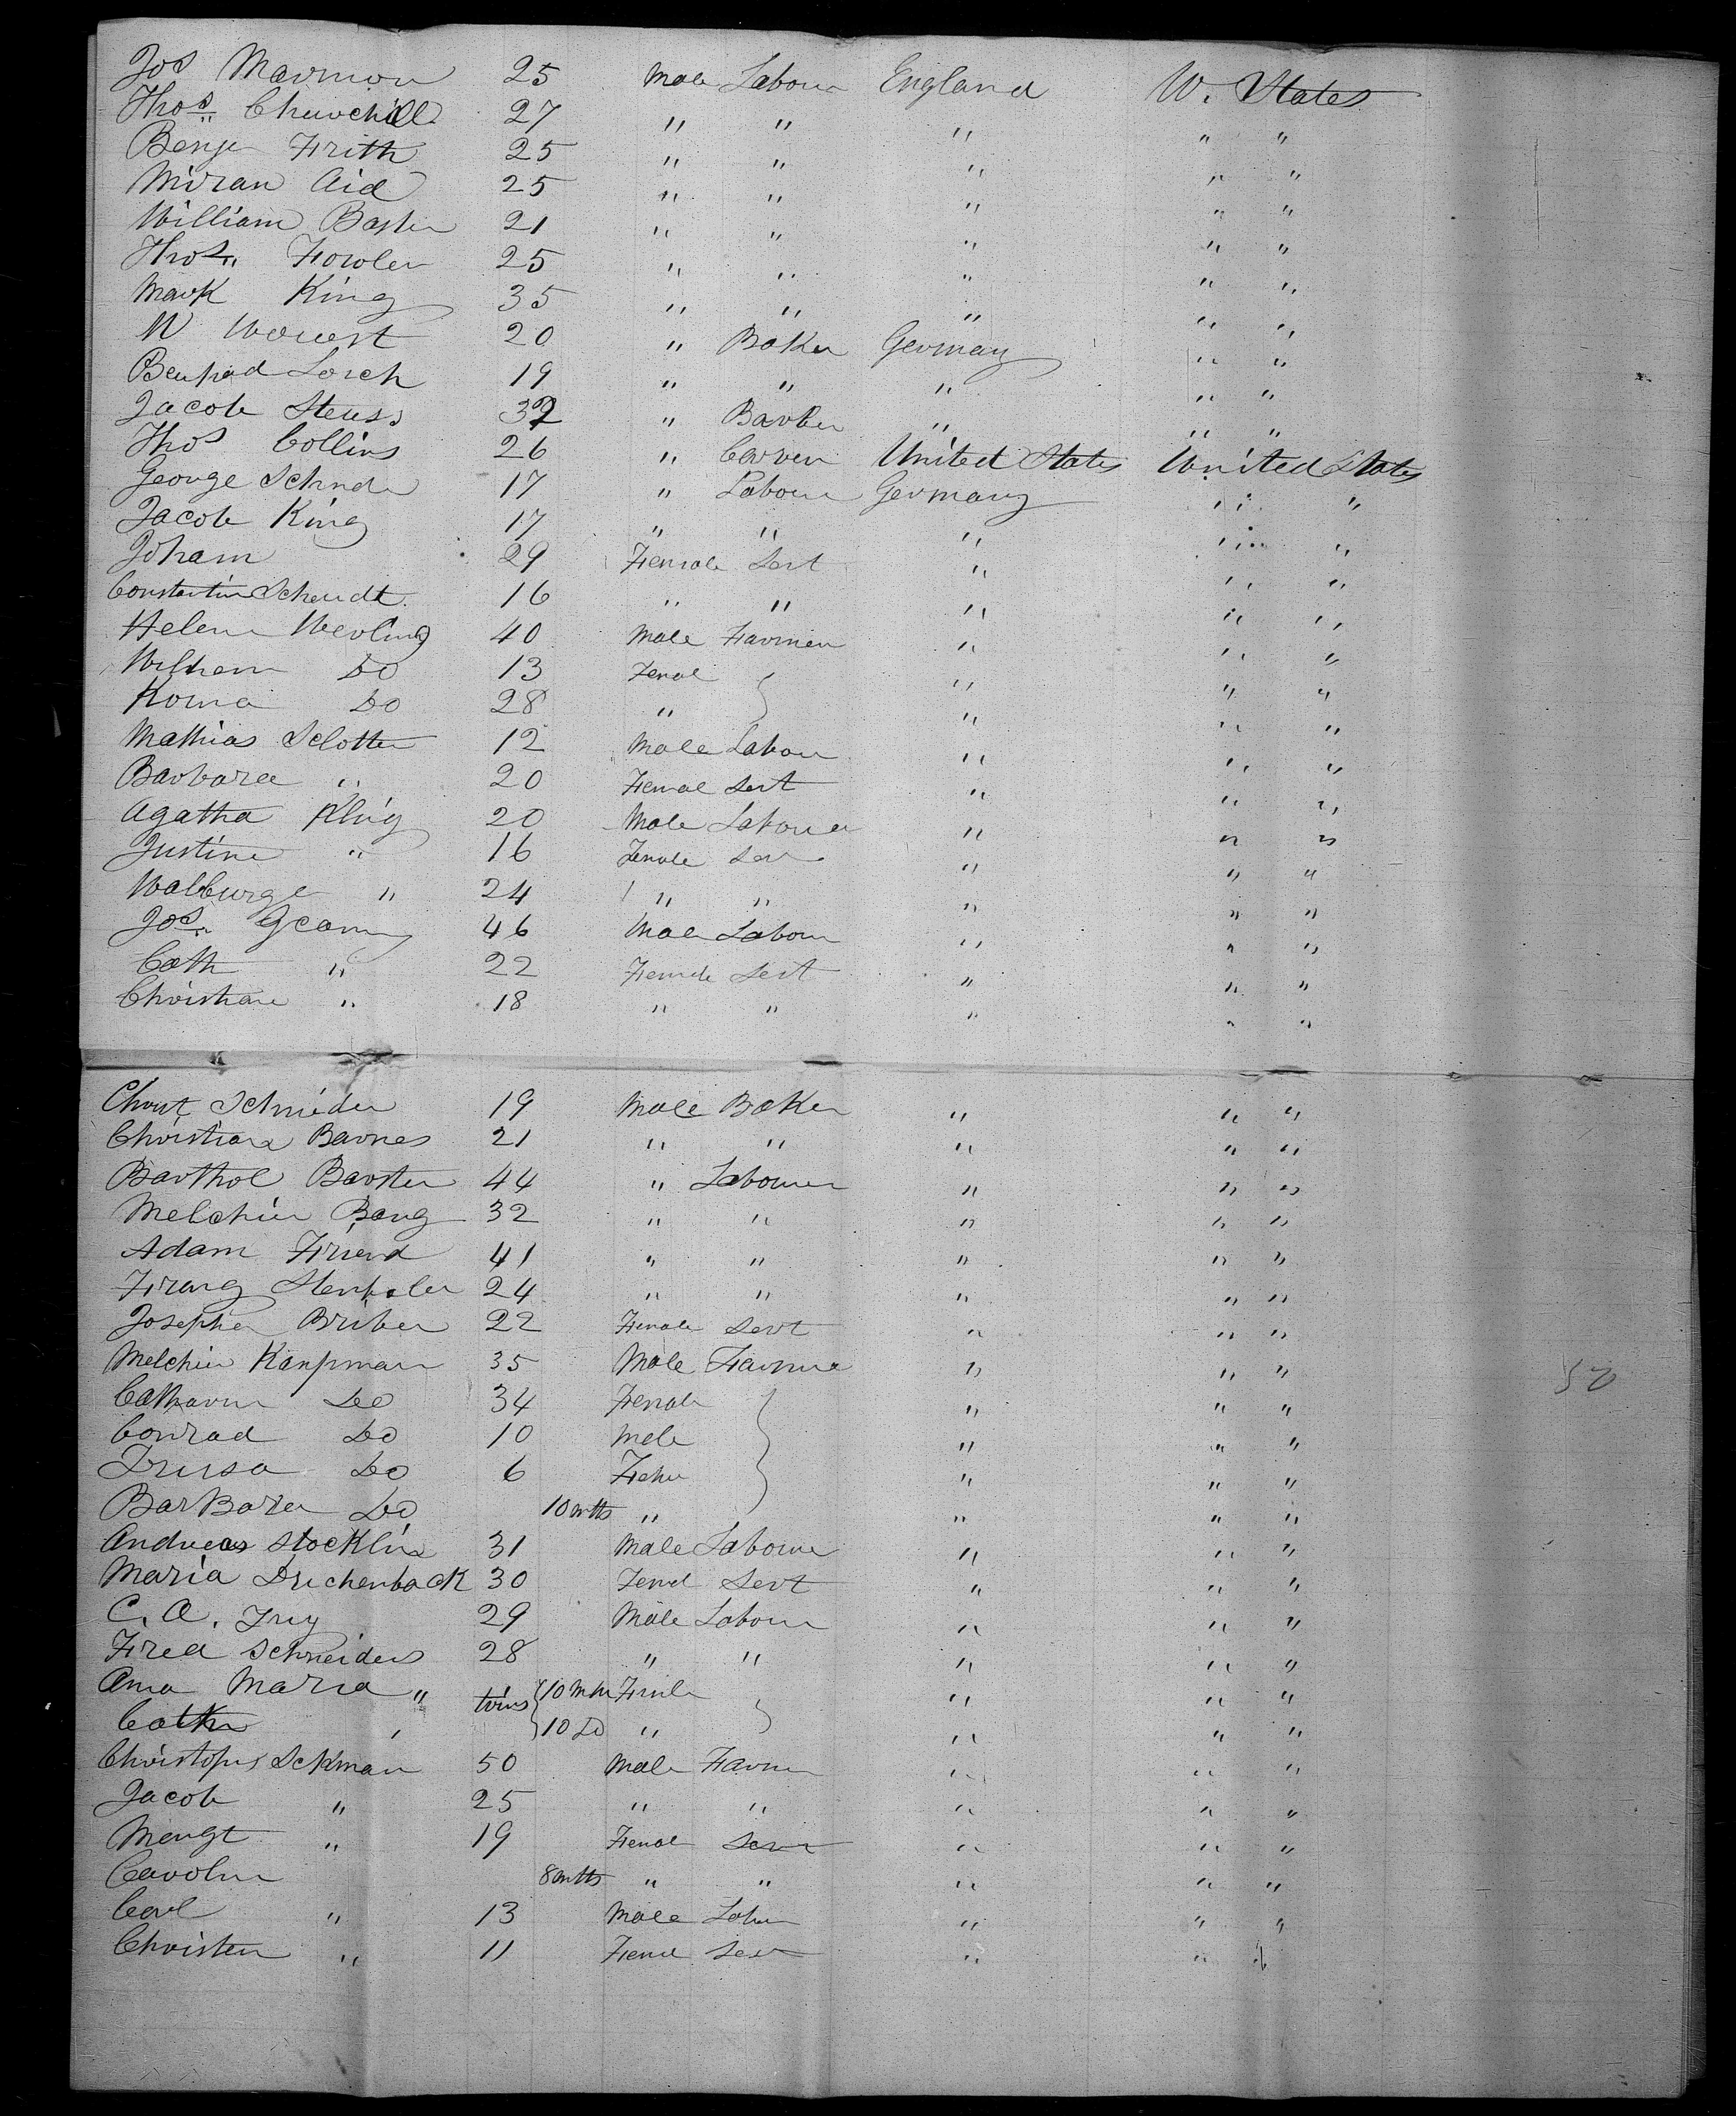 Jos Marmon 25 Male Labour England W. States
Thos Churchill 27 " " " " "
Benj Frith 25 " " " " "
Miran Aid 25 " " " " "
William Baster 21 " " " " "
Thos Fowler 25 " " " " "
Mark King 35 " " " " "
W 20 " Baker Germany " "
Lorch 19 " " " " "
Jacob Steuss 32 " Barber " " "
Thos Collins 26 " Carver United States United States
George Schnder 17 " Labour Germany " "
Jacob King 17 " " " " "
Joham 29 Female Sert " " "
Constantin Schmidt 16 " " " " "
Helena Werling 40 Male Farmer " " "
Wilhem Do 13 Femal " " "
Do 28 " " " "
Mathias Slotter 12 Male Labour " " "
Barbara " 20 Femal Sert " " "
Agatha Klug 20 Male Labour " " "
Justine " 16 Female Ser " " "
Walburge " 24 " " " " "
Jos 46 Male Labour " " "
Cath " 22 Female Sert " " "
Christiane " 18 " " " " "
Christ Schnieder 19 Male Baker " " "
Christiana Barnes 21 " " " " "
Barthol Barster 44 " Labourer " " "
Melchior Bang 32 " " " " "
Adam Friend 41 " " " " "
Franz 24 " " " " "
Josepha Briber 22 Female Sert " " "
Melchior Kaupman 35 Male Farmer " " "
Catharin Do 34 Female " " "
Conrad Do 10 Male " " "
Do 6 Fem " " "
BarBara Do 10 mths " " " "
Andreas Stocklin 31 Male Labour " " "
Maria Drichenback 30 Femal Sert " " "
C. A. Frey 29 Male Labour " " "
Fred Schneiders 28 " " " " "
Ana Maria " twins 10 Mths Femle " " "
Cathr " 10 Do " " " "
Christophs Sckman 50 Male Farmer " " "
Jacob " 25 " " " " "
" 19 Femal Serv " " "
Carolin 8 mths " " " " "
Carl " 13 Male Labour " " "
Christen " 11 Femal Ser " " "